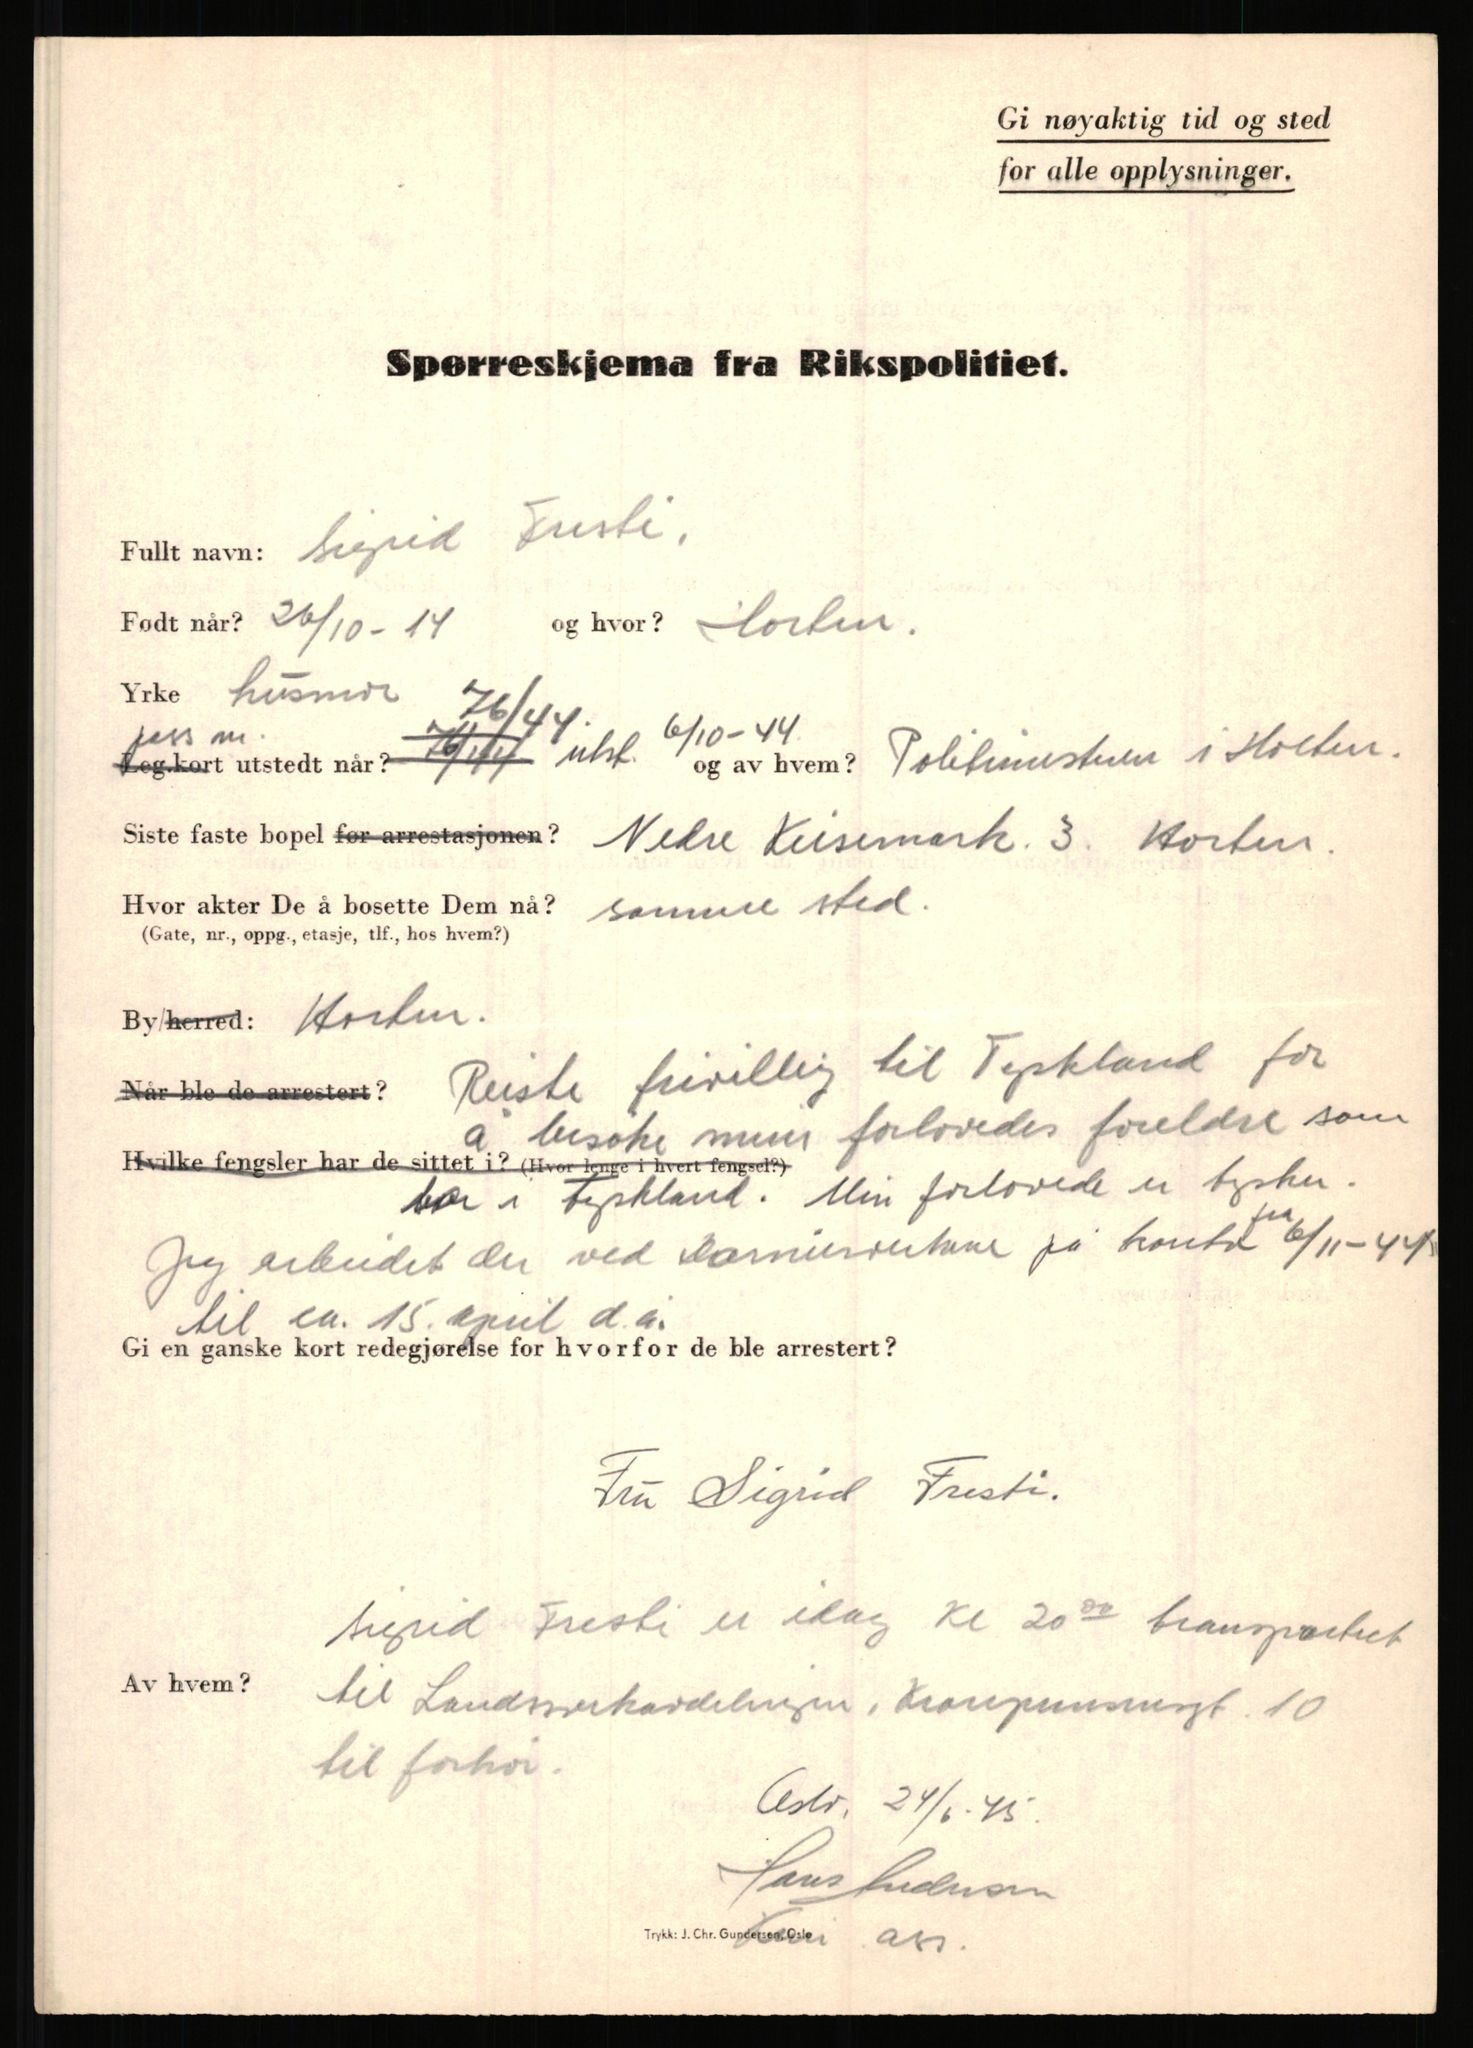 Gi nøyaktig tid og sted
for alle opplysninger.
Spørreskjema fra Rikspolitiet.
Fullt navn: Sigrid Fresti.
Født når? 26/10-14 og hvor? Horten.
Yrke husmor
pass nr. 76/44. 6/10-44.
Leg.kort utstedt når? utst. og av hvem? Politimesteren i Horten.
Siste faste bopel før arrestasjonen? Nedre Keisemark. 3. Horten.
Hvor akter De å bosette Dem nå? samme sted.
(Gate, nr., oppg., etasje, tlf., hos hvem?)
By/herred: Horten.
Når ble de arrestert? Reiste frivillig til Tyskland for
å besøke min forlovedes foreldre som
Hvilke fengsler har de sittet i? (Hvor lenge i hvert fengsel?)
bor i Tyskland. Min forlovede er tysker.
Jeg arbeidet der ved på kontor fra 6/11-44
til ca. 15. april d.å.
Gi en ganske kort redegjørelse for hvorfor de ble arrestert?
Fru Sigrid Fresti.
Sigrid Fresti er idag kl 20⁰⁰ transportert
Av hvem? til Landssvikavdelingen, 10
til forhør.
Oslo, 24/6-45.
Hans Andersen
Trykk: J. Chr. Gundersen, Oslo
ass.